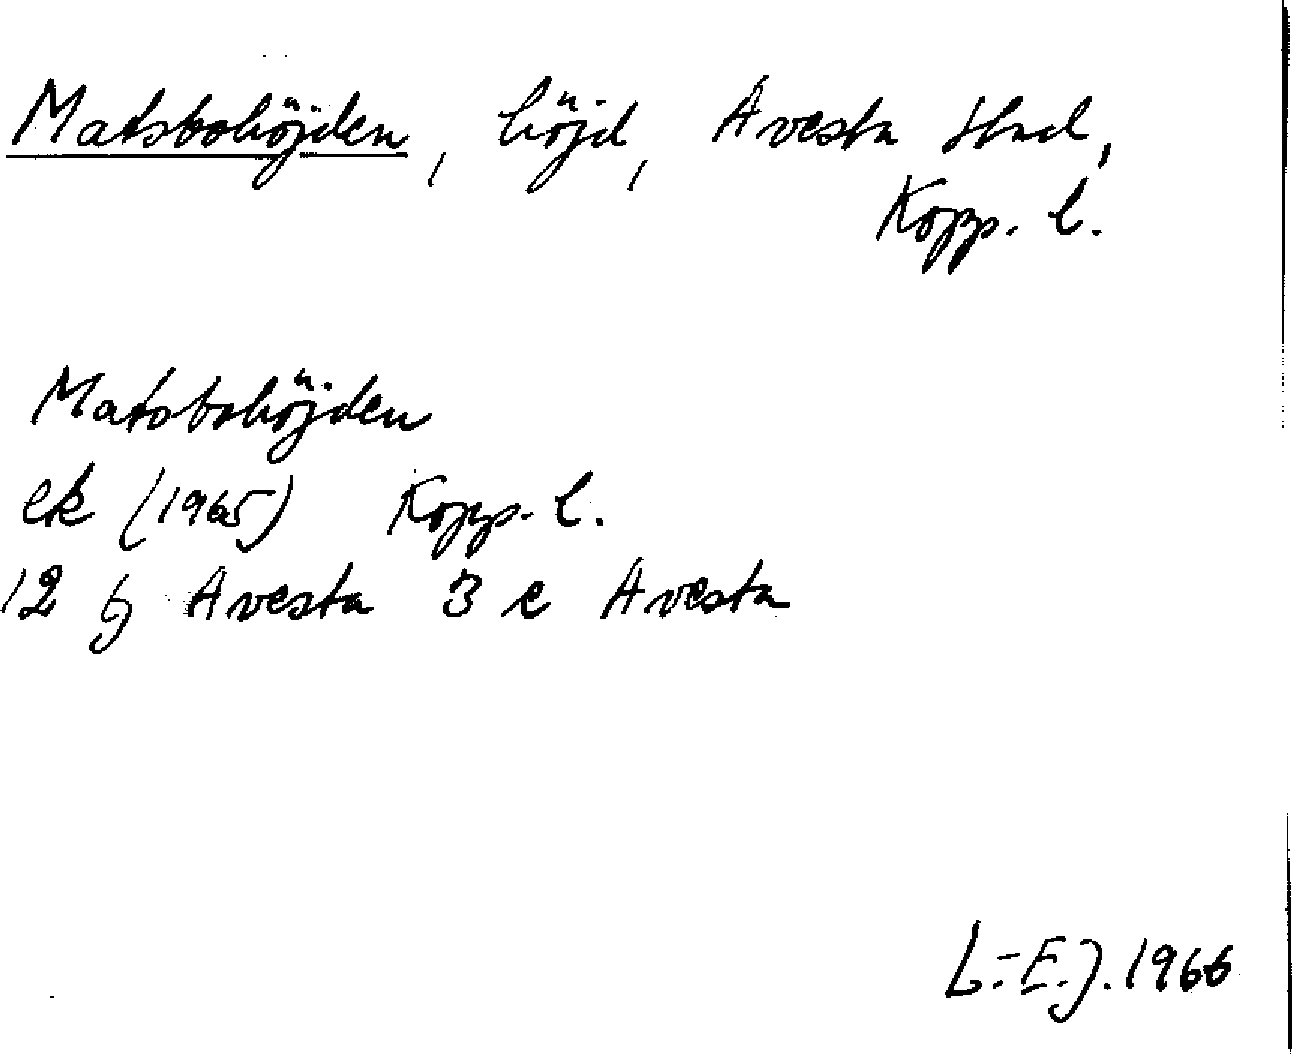 Matsbohöjden, höjd, Avesta stad,
Kopp. l.
Matsbohöjden
ek (1965) Kopp. l.
12 G Avesta 3 e Avesta
L.-E.J. 1966